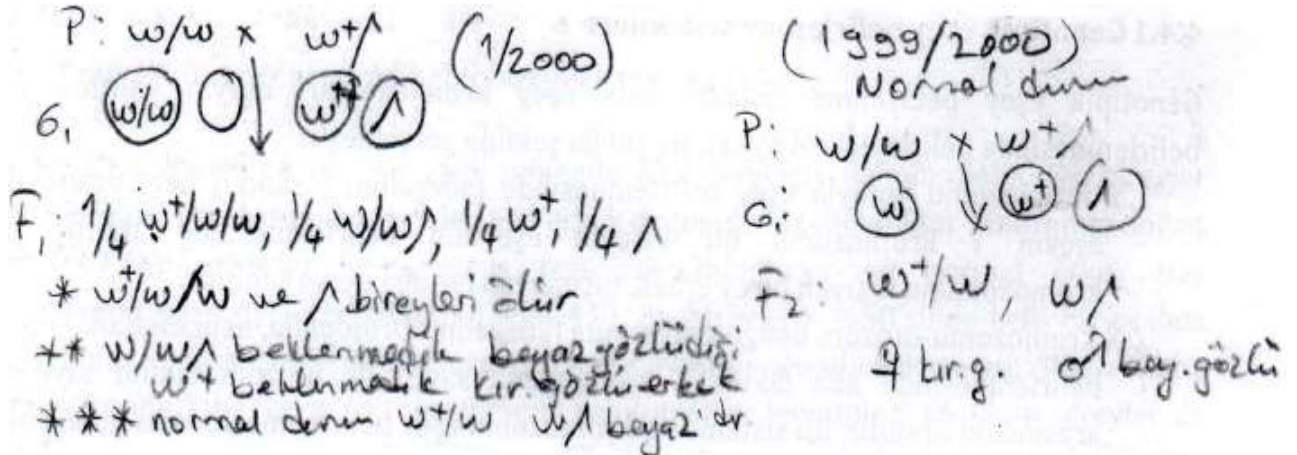 P: w/w x w+/Λ (1/2000)
G, w/w w+ Λ
F1: 1/4 w+/w/w, 1/4 w/w/Λ, 1/4 w+, 1/4 Λ
* w+/w/w ve Λ bireyleri ölür
** w/wΛ beklenmedik beyaz gözlü dişi
w+ beklenmedik kır. gözlü erkek
*** normal durum w+/w w/Λ beyaz dır.
(1999/2000)
Normal durum
P: w/w x w+Λ
G: w w+ Λ
F2: w+/w, wΛ
♀ kır.g. ♂ bey.gözlü